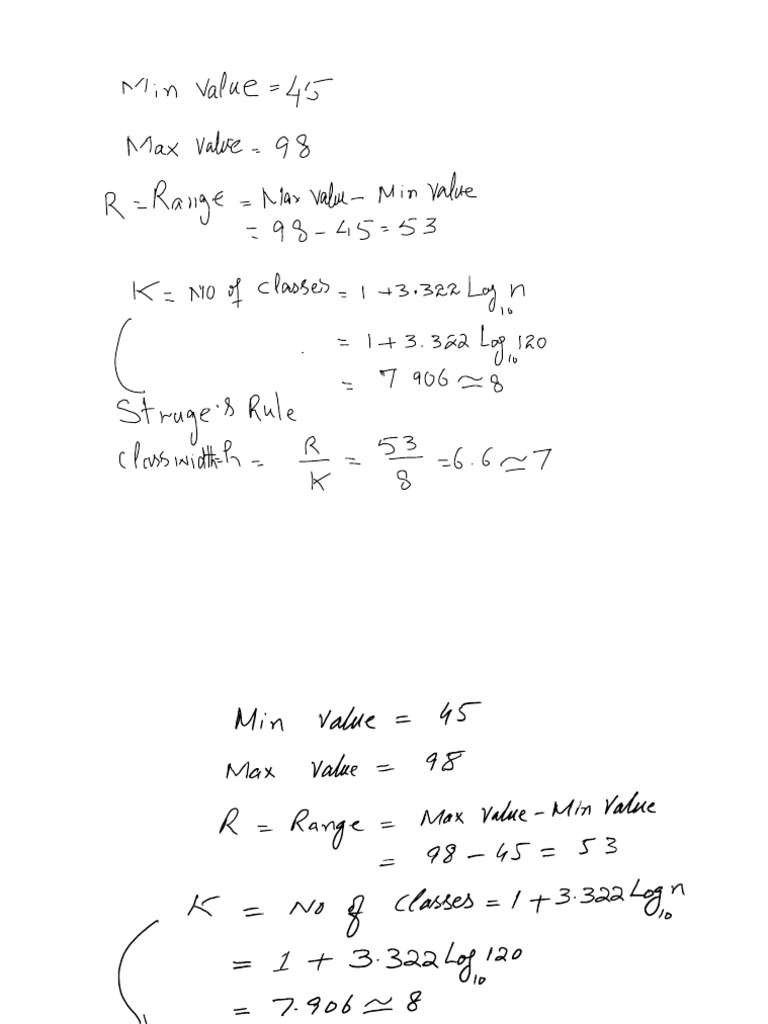 Min Value = 45
Max value = 98
R = Range = Max Value - Min Value
= 98 - 45 = 53
K = NO of classes = 1 + 3.322 Log₁₀ n
= 1 + 3.322 Log₁₀ 120
= 7 906 ≃ 8
Struge's Rule
Class width = h = R/K = 53/8 = 6.6 ≃ 7
Min Value = 45
Max Value = 98
R = Range = Max Value - Min Value
= 98 - 45 = 53
K = No of classes = 1 + 3.322 Log₁₀ n
= 1 + 3.322 Log₁₀ 120
= 7.906 ≃ 8